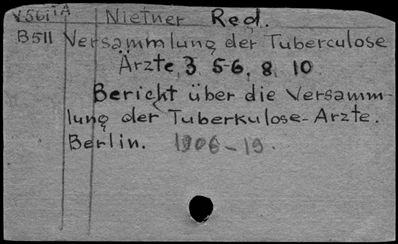 V561TA Nietner Red.
B511 Versammlung der Tuberculose
Ärzte, 3 5-6, 8, 10
Bericht über die Versamm-
lung der Tuberkulose-Ärzte.
Berlin. 1906-19.